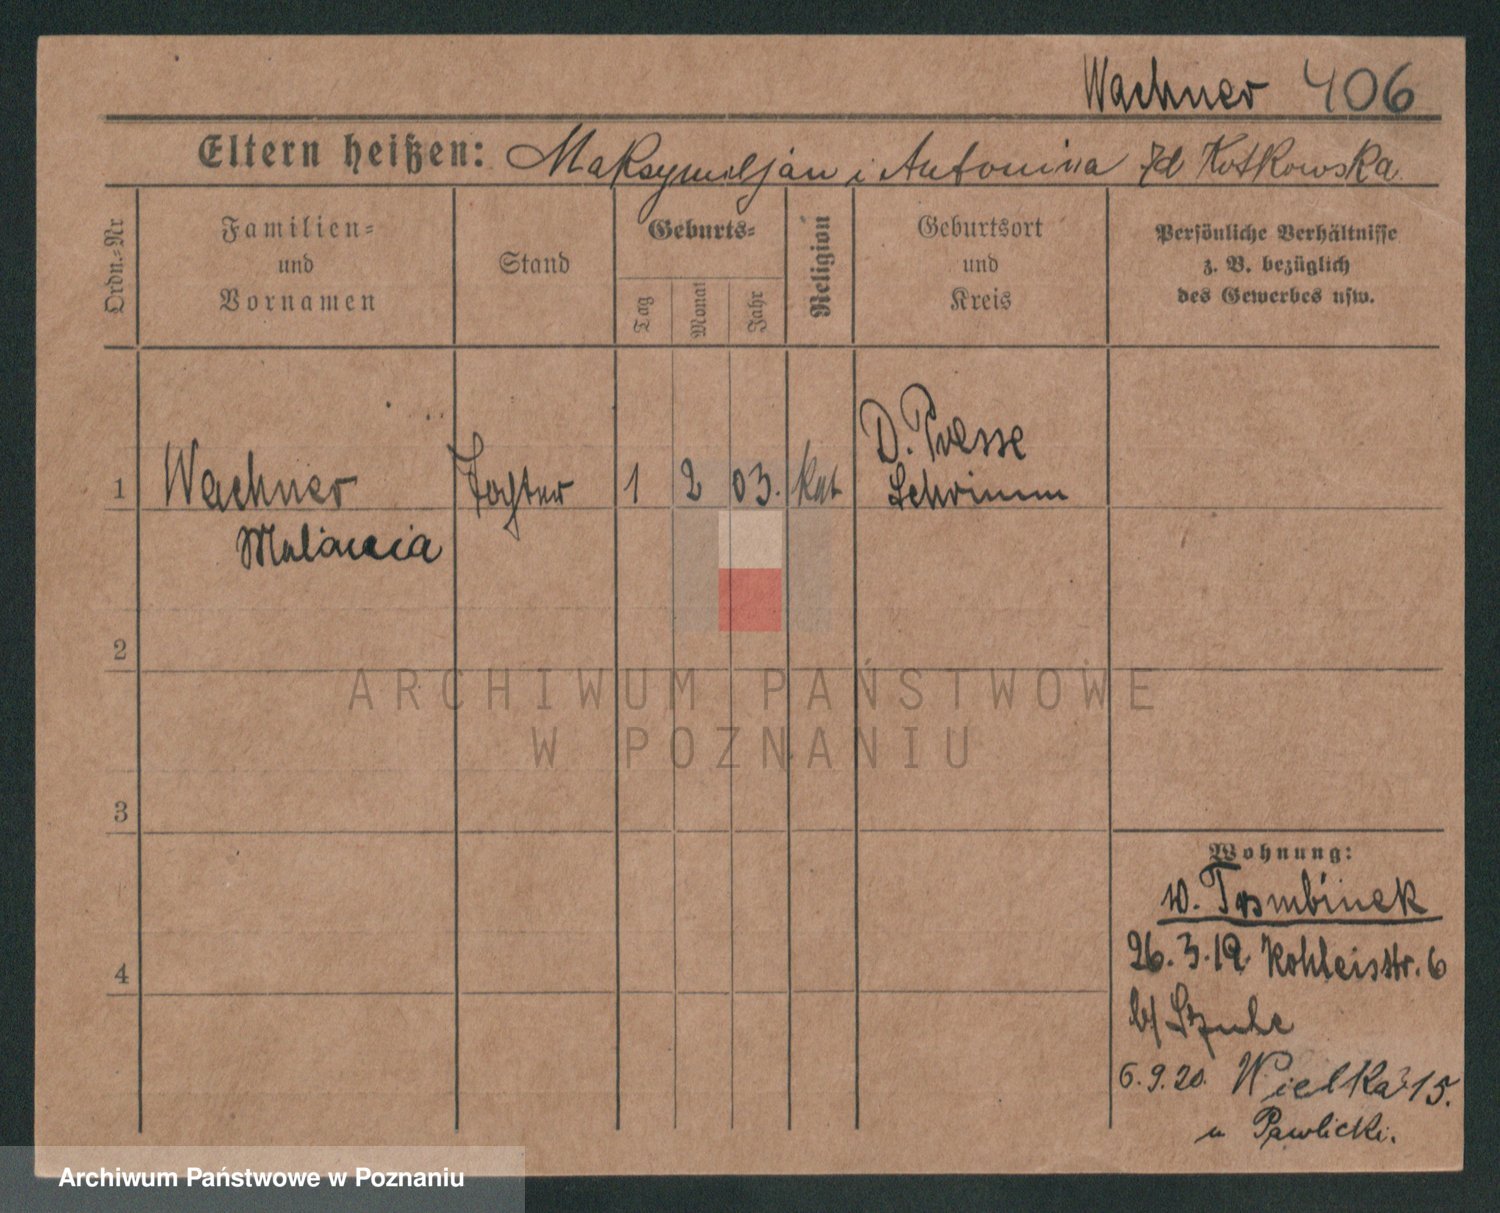 Wachner 406
Eltern heißen: Maksymiljan i Antonina zd Kotkowska
Ordn.-Nr
Familien-
und
Vornamen
Stand
Geburts-
Tag
Monat
Jahr
Religion
Geburtsort
und
Kreis
Persönliche Verhältnisse
z. B. bezüglich
des Gewerbes usw.
1
Wachner
Tochter
1
2
03.
kat
D. Presse
Schrimm
2
3
4
Wohnung:
26. 3. 19 Kohleisstr. 6
b/ Szulc
6. 9. 20. Wielka 15.
u Pawlicki.
ARCHIWUM PAŃSTWOWE
W POZNANIU
Archiwum Państwowe w Poznaniu